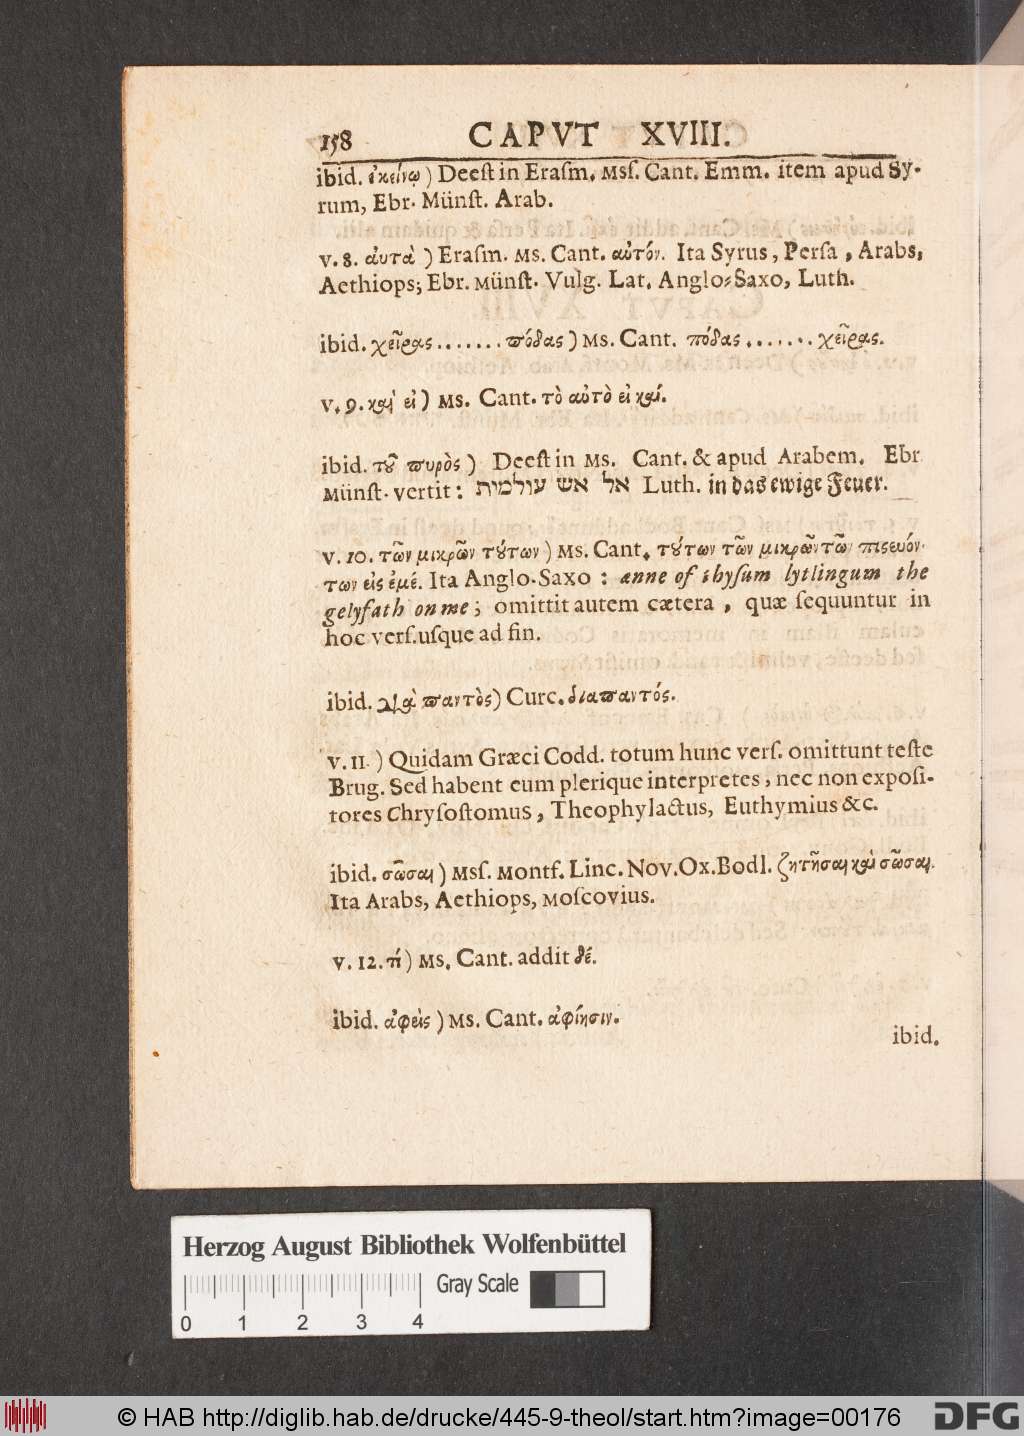 158 CAPVT XVIII.
ibid. ἐκείνῳ) Deest in Erasm. Mss. Cant. Emm. item apud Sy-
rum, Ebr. Münst. Arab.
v. 8. ἀυτὰ ) Erasm. Ms. Cant. αὐτόν. Ita Syrus, Persa, Arabs,
Aethiops; Ebr. Münst. Vulg. Lat. Anglo-Saxo, Luth.
ibid. χεῖρας.......πόδας) Ms. Cant. πόδας.......χεῖρας.
v. 9. καὶ εἰ) Ms. Cant. τὸ αὐτὸ εἰ καί.
ibid. τοῦ πυρὸς ) Deest in Ms. Cant. & apud Arabem. Ebr.
Münst. vertit: אל אש עולמית Luth. in das ewige Feuer.
v. 10. τῶν μικρῶν τούτων ) Ms. Cant. τούτων τῶν μικρῶν τῶν πιςευόν-
των εἰς ἐμέ. Ita Anglo-Saxo : anne of thysum lytlingum the
gelyfath on me; omittit autem cætera, quæ sequuntur in
hoc vers. usque ad fin.
ibid. διὰ παντὸς) Curc. διαπαντός.
v. 11. ) Quidam Græci Codd. totum hunc vers. omittunt teste
Brug. Sed habent eum plerique interpretes, nec non exposi-
tores Chrysostomus, Theophylactus, Euthymius &c.
ibid. σῶσαι) Mss. Montf. Linc. Nov. Ox. Bodl. ζητῆσαι καὶ σῶσαι.
Ita Arabs, Aethiops, Moscovius.
v. 12. τί) Ms. Cant. addit δέ.
ibid. ἀφεὶς ) Ms. Cant. ἀφίησιν.
ibid.
Herzog August Bibliothek Wolfenbüttel
Gray Scale
0 1 2 3 4
© HAB http://diglib.hab.de/drucke/445-9-theol/start.htm?image=00176
DFG